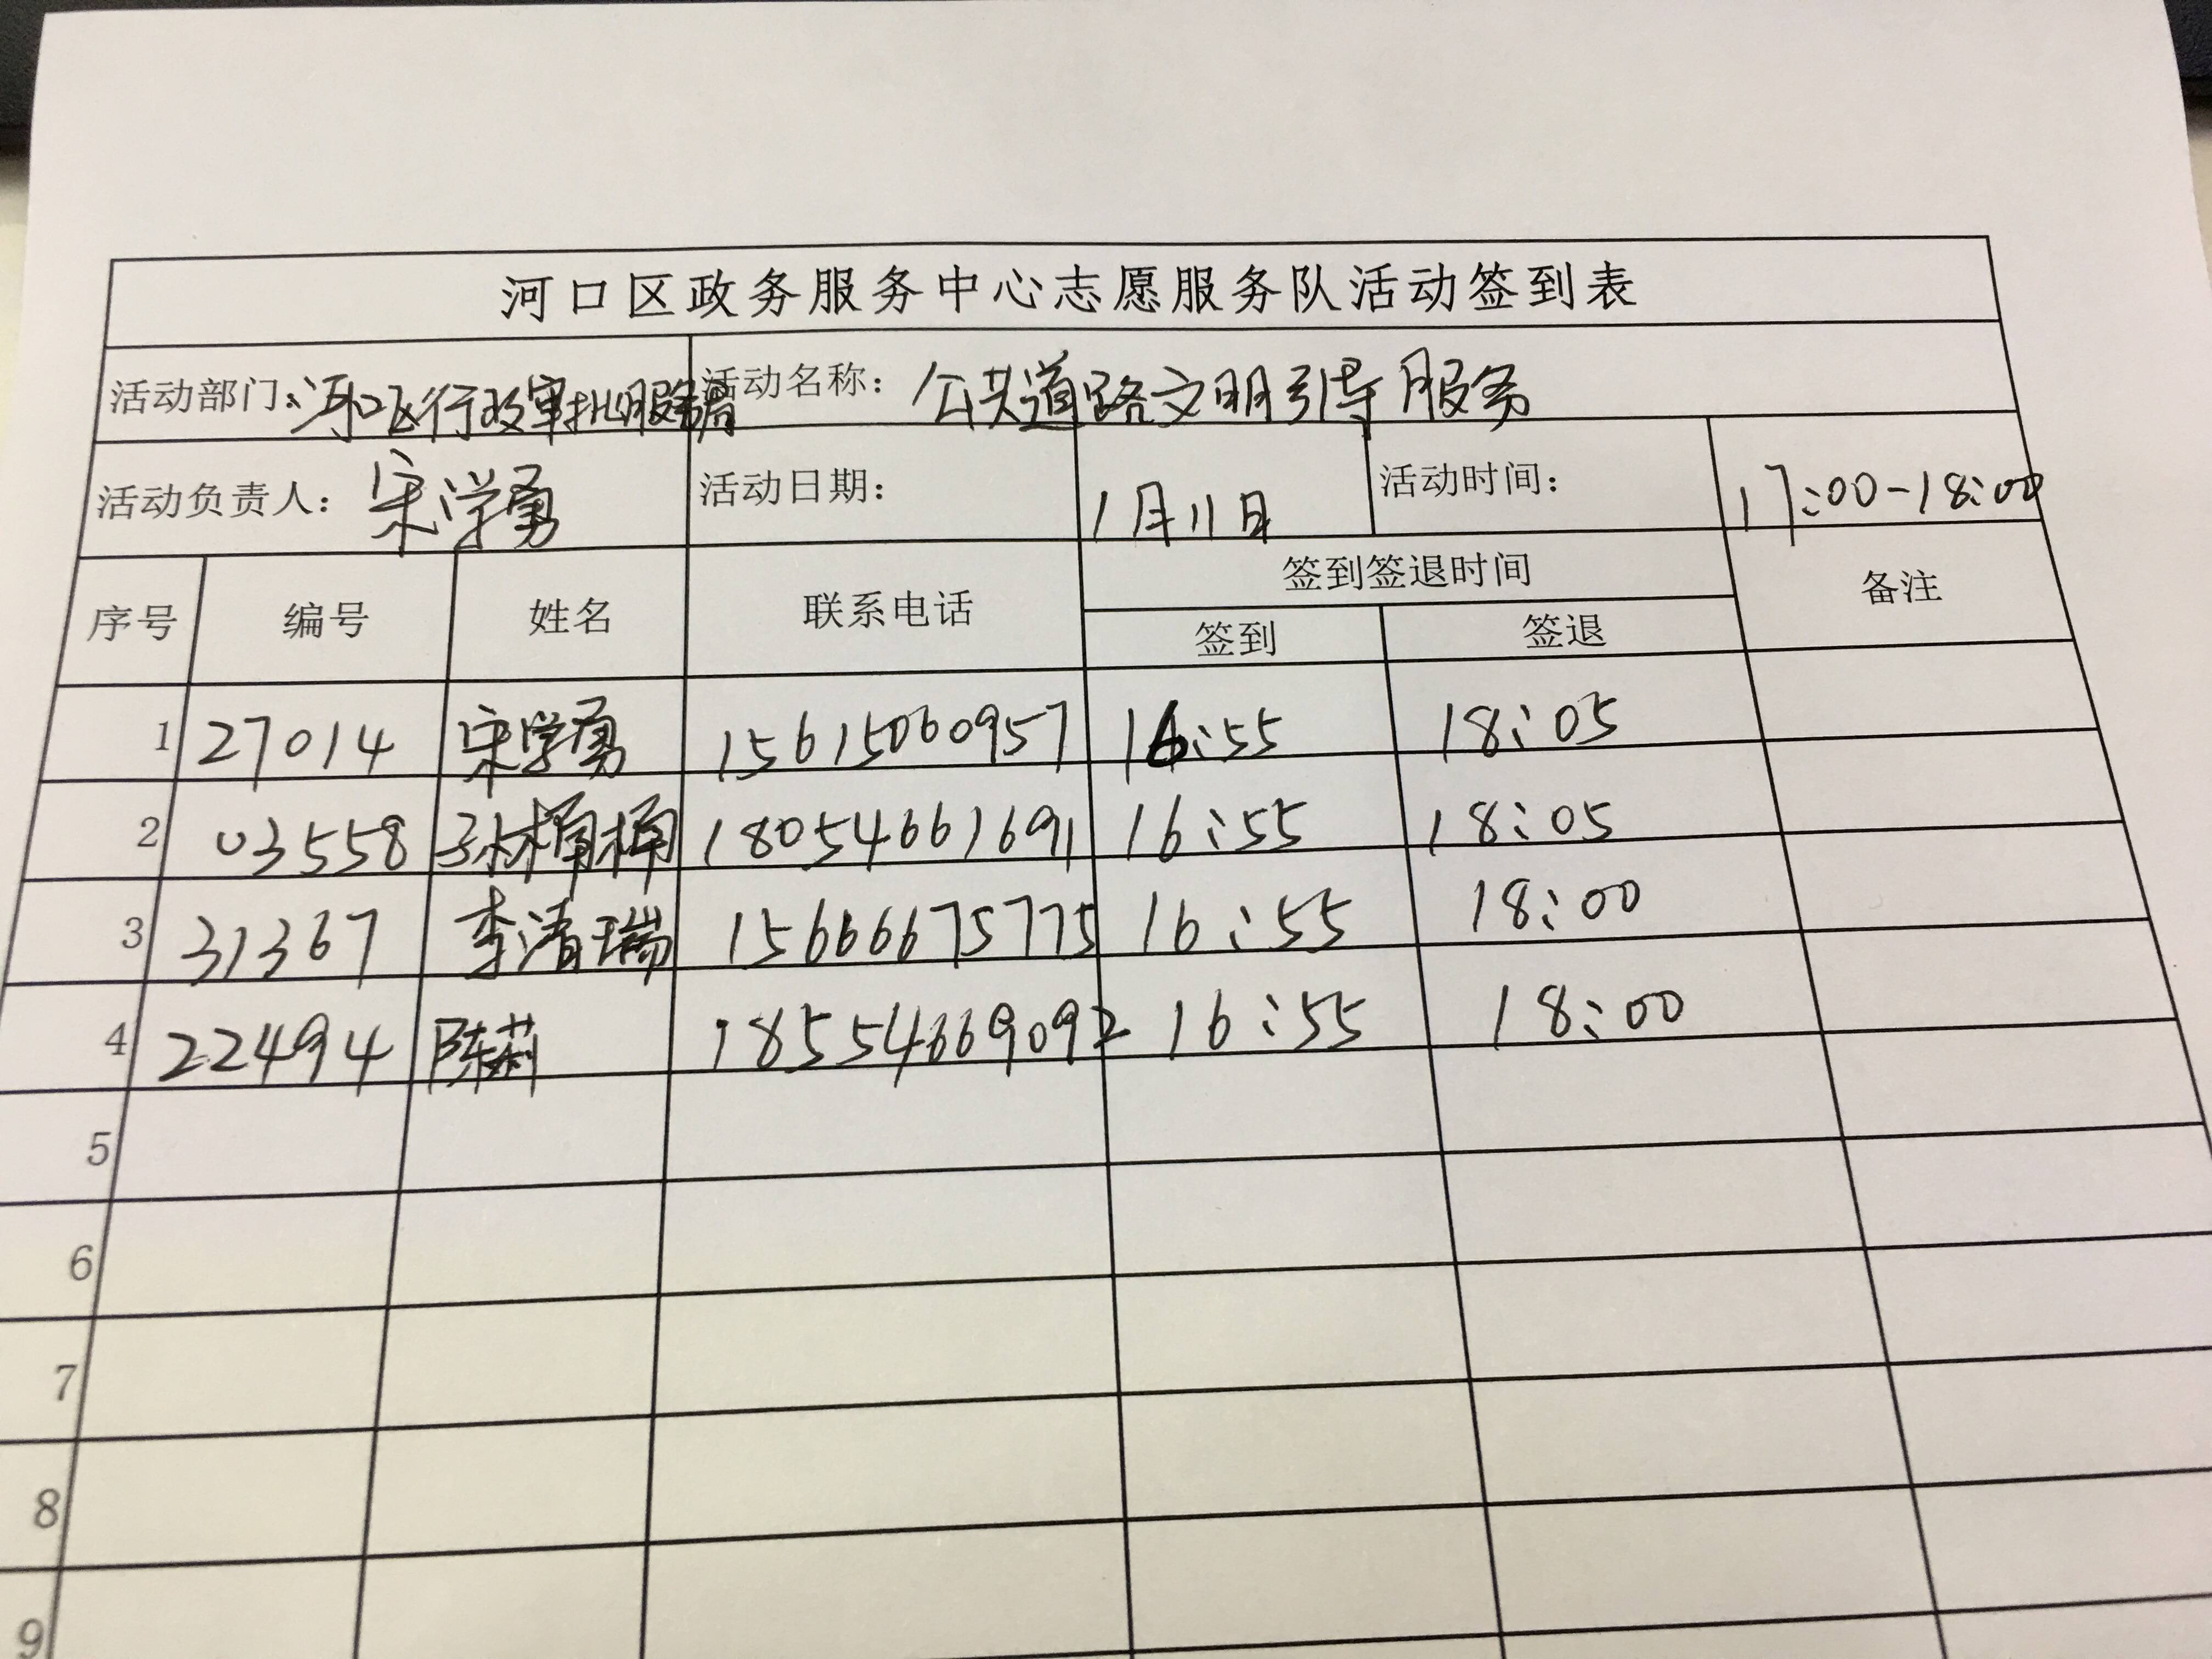 河口区政务服务中心志愿服务队活动签到表
活动部门：河口区行政审批服务局 活动名称：公共道路文明引导服务
活动负责人：宋学勇 活动日期： 1月11日 活动时间： 17:00-18:00
序号 编号 姓名 联系电话 签到签退时间 备注
签到 签退
1 27014 宋学勇 15615060957 16:55 18:05
2 03558 孙楠楠 18054661691 16:55 18:05
3 31367 李清瑞 15666675775 16:55 18:00
4 22494 陈莉 18554669092 16:55 18:00
5
6
7
8
9